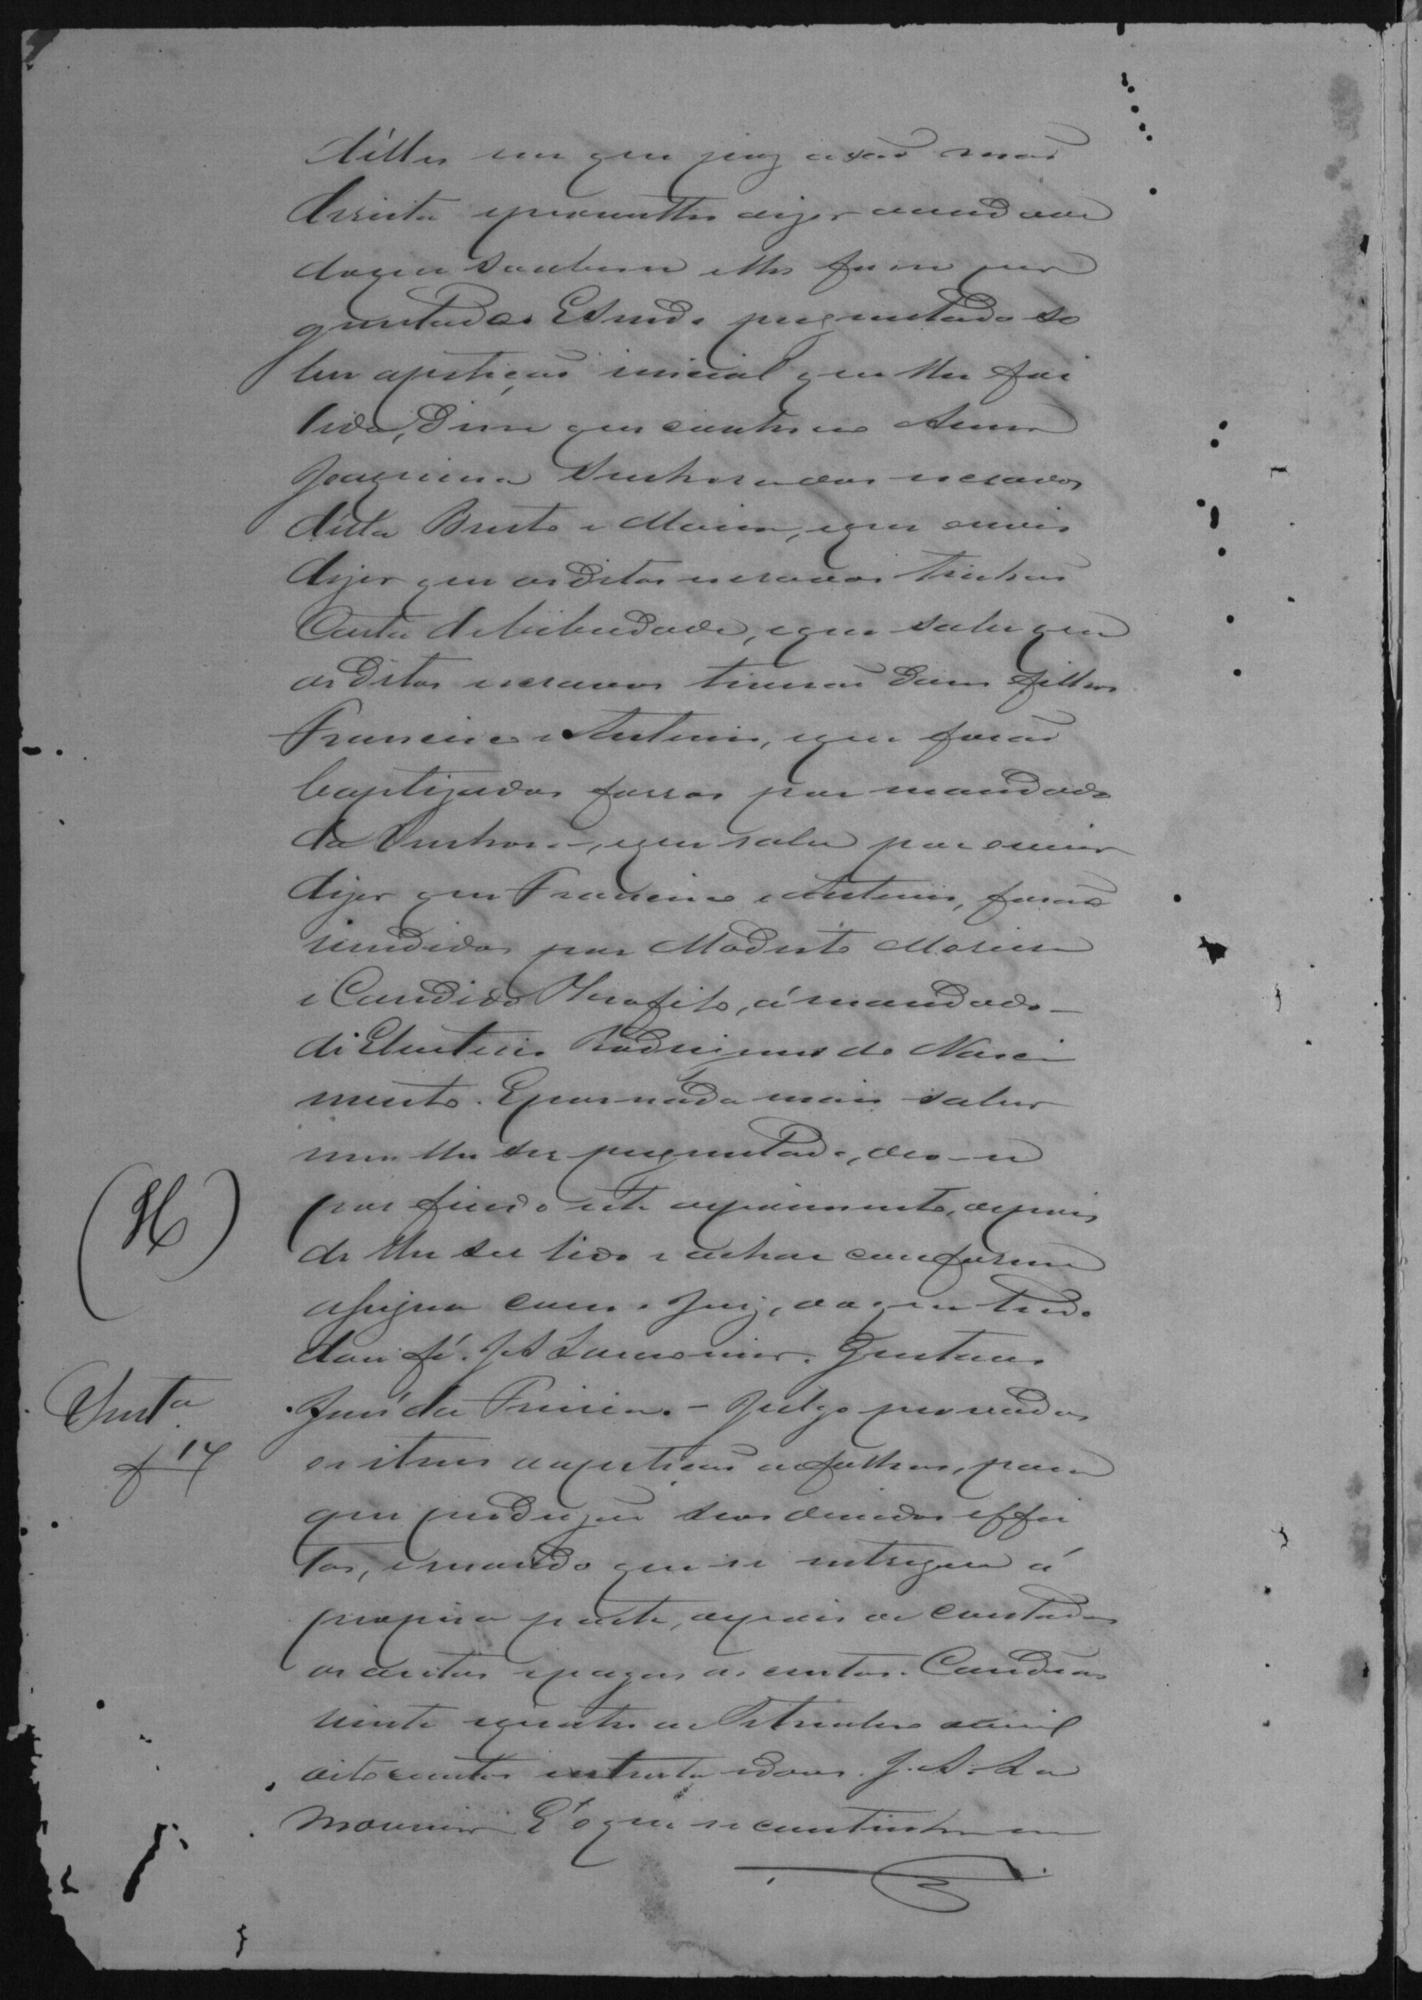 delles em que poz a sua mão
direita e prometteo dizer a verdade
do que soubesse e lhe fosse per
guntado. E sendo perguntado so
bre a petição inicial que lhe foi
lida, disse que conheceo Anna
Joaquina Senhora dos escravos
della Bento e Maria, e que ouvio
dizer que os ditos escravos tinhão
Carta de liberdade, e que sabe que
os ditos escravos tiverão dous filhos
Francisco e Antonio, e que forão
baptizados forros por mandado
da Senhora, e que sabe por ouvir
dizer que Francisco e Antonio, forão
vendidos por Modesto
e Candido, a mandado
de Eleuterio Rodrigues do Nasci
mento. E por nada mais saber
nem lhe ser perguntado, deo-se
por findo este depoimento, depois
de lhe ser lido e achar conforme
assigna com o Juiz, do que tudo
dou fé. J A Lamounier.
José da Julgo provados
os itens da petição a folhas, para
que produzão seos devidos effei
tos, e mando que se entregue á
propria parte, depois de contados
os autos e pagas as custas. Candeias
vinte e quatro de Setembro de mil
oitocentos e setenta e dous. J. A. La
mounier E' o que se continha em
(H)
17